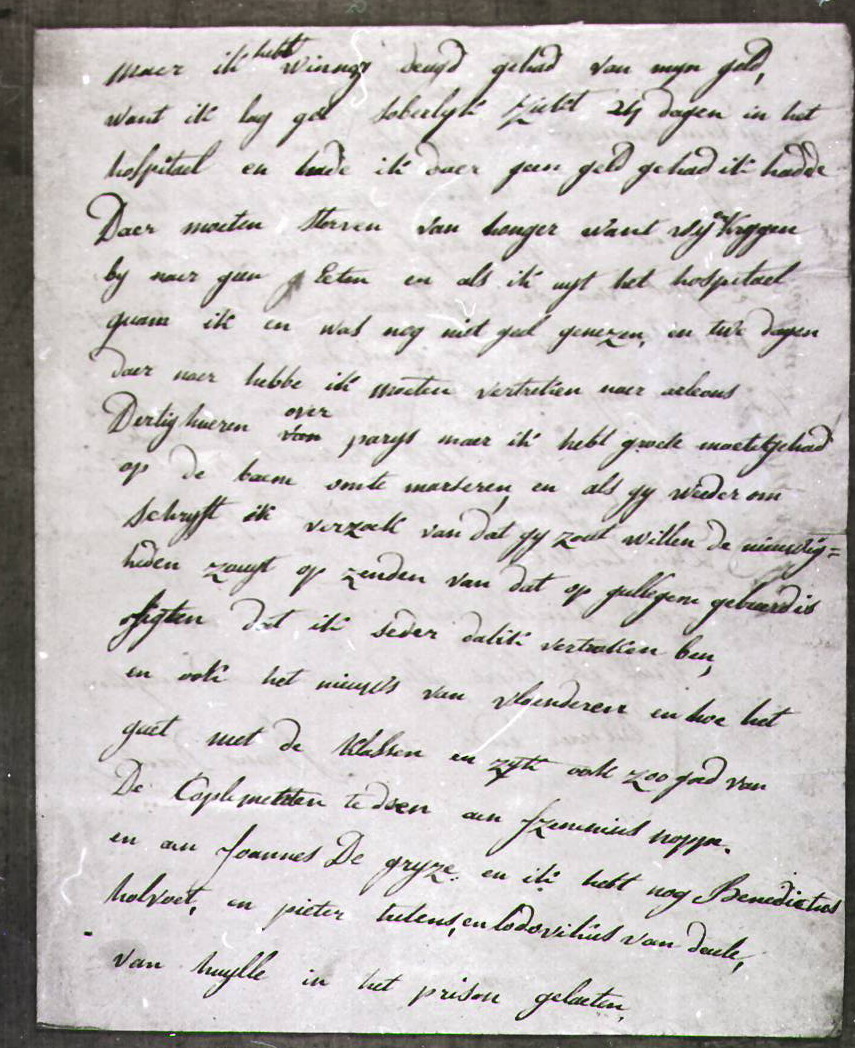 maer ik hebt winnig deugd gehad van myn geld,
want ik lag geel soberlyk ziekt 24 dagen in het
hospitael en hade ik daer geen geld gehad ik hadde
Daer moeten sterven van honger want wy krygen
by naer geen Eeten en als ik uyt het hospitael
quam ik en was nog niet geel genezen, en twe dagen
daer naer hebbe ik moeten vertrekken naer orleans
Dertig hueren over parys maer ik hebt groote moete gehad
op de baene omte marseren, en als gy wederom
schryft ik verzoek van dat gy zout willen de nieuwtig=
heden zouyt op zenden van dat op gullegem gebeurd is
sigten dat ik seder dalik vertrokken ben,
en ook het nieuws van vloenderen en hoe het
gaet met de klassen en zyt ook zoo goed van
De Complimenten te doen aen fransies noppe.
en aen Joannes De gryze. en ik hebt nog Benedictus
holvoet, en pieter tutens, en Lodovikus van daele,
van huylle in het prison gelaeten,